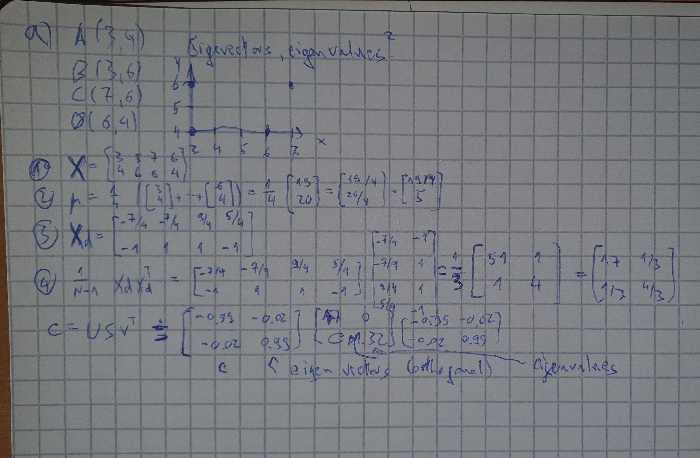 a) A(3,4)
Eigenvectors, eigenvalues 2
B(3,6)
C(7,6)
D(6,4)
4 6 5 4
2 4 5 6 7 x
① X = [3 3 7 6; 4 6 6 4]
② μ = 1/4 ([3; 4] + ... + [6; 4]) = 1/4 [19; 20] = [19/4; 20/4] = [19/4; 5]
③ Xd = [-7/4 -7/4 9/4 5/4; -1 1 1 -1]
④ 1/N-1 Xd Xd^T = [-7/4 -7/4 9/4 5/4; -1 1 1 -1] [-7/4 -1; -7/4 1; 9/4 1; 5/4 -1] = 1/3 [51 1; 1 4] = [17 1/3; 1/3 4/3]
C = USV^T = [-0.99 -0.02; -0.02 0.99] [17 0; 0 1.32] [-0.99 -0.02; -0.02 0.99]
eigenvectors (orthogonal) eigenvalues